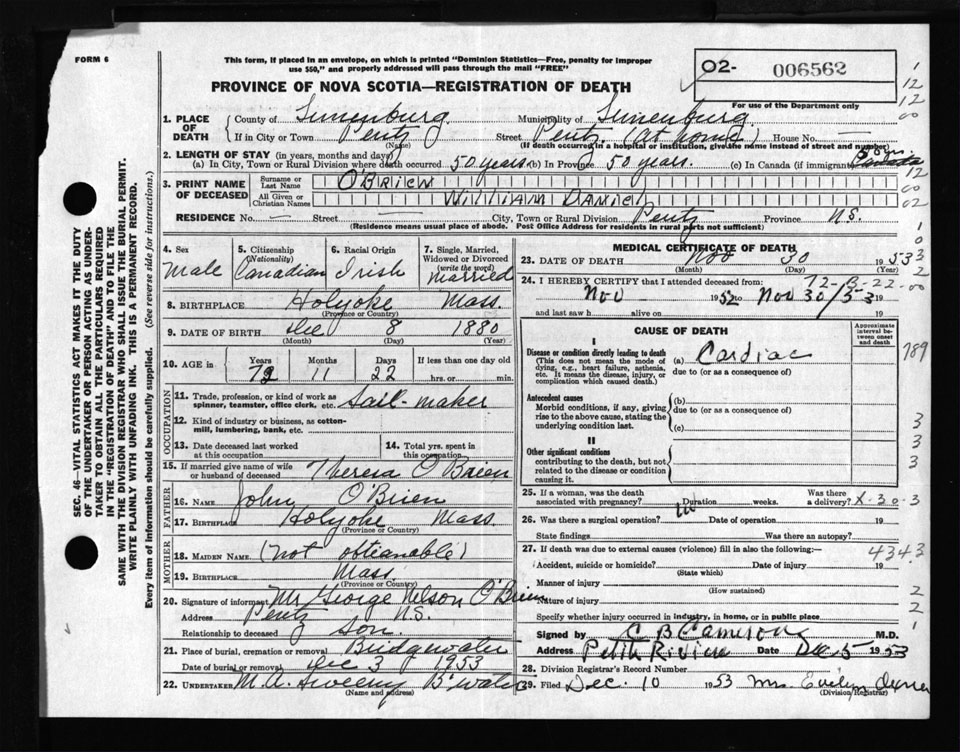 FORM 6
This form, if placed in an envelope, on which is printed "Dominion Statistics—Free, penalty for improper
use $50," and properly addressed will pass through the mail "FREE"
PROVINCE OF NOVA SCOTIA—REGISTRATION OF DEATH
O2- 006562
For use of the Department only
1. PLACE OF DEATH
County of Lunenburg Municipality of Lunenburg
If in City or Town Pentz Street Pentz (at home) House No. —
(Name) (If death occurred in a hospital or institution, give the name instead of street and number)
2. LENGTH OF STAY (in years, months and days)
(a) In City, Town or Rural Division where death occurred 50 years (b) In Province 50 years. (c) In Canada (if immigrant) Canada
3. PRINT NAME OF DECEASED
Surname or Last Name O'BRIEN
All Given or Christian Names WILLIAM DANIEL
RESIDENCE No. — Street — City, Town or Rural Division Pentz Province N.S.
(Residence means usual place of abode. Post Office Address for residents in rural parts not sufficient)
4. Sex Male
5. Citizenship (Nationality) Canadian
6. Racial Origin Irish
7. Single, Married, Widowed or Divorced (write the word) Married
8. BIRTHPLACE Holyoke Mass.
(Province or Country)
9. DATE OF BIRTH Dec 8 1880
(Month) (Day) (Year)
10. AGE in Years 72 Months 11 Days 22 If less than one day hrs. or min.
OCCUPATION
11. Trade, profession or kind of work as spinner, teamster, office clerk, etc. Sail-maker
12. Kind of industry or business, as cotton-mill, lumbering, bank, etc.
13. Date deceased last worked at this occupation
14. Total yrs. spent in this occupation
15. If married give name of wife or husband of deceased Theresa O'Brien
FATHER
16. NAME John O'Brien
17. BIRTHPLACE Holyoke Mass.
(Province or Country)
MOTHER
18. MAIDEN NAME (not obtianable)
19. BIRTHPLACE Mass.
(Province or Country)
20. Signature of informant Mr. George Nelson O'Brien
Address Pentz N.S.
Relationship to deceased son.
21. Place of burial, cremation or removal Bridgewater
Date of burial or removal Dec 3 1953
22. UNDERTAKER M.A. Sweeny B'water
(Name and address)
MEDICAL CERTIFICATE OF DEATH
23. DATE OF DEATH Nov 30 1953
(Month) (Day) (Year)
24. I HEREBY CERTIFY that I attended deceased from:
Nov 1952 Nov 30/53 19
and last saw h alive on 19
72-B-22-00
CAUSE OF DEATH
Approximate interval between onset and death
I
Disease or condition directly leading to death
(This does not mean the mode of dying, e.g., heart failure, asthenia, etc. It means the disease, injury, or complication which caused death.)
(a) Cardiac
due to (or as a consequence of)
Antecedent causes
Morbid conditions, if any, giving rise to the above cause, stating the underlying condition last.
(b)
due to (or as a consequence of)
(c)
II
Other significant conditions
contributing to the death, but not related to the disease or condition causing it.
25. If a woman, was the death associated with pregnancy? Duration weeks. Was there a delivery? X-30-3
26. Was there a surgical operation? Date of operation 19
State findings Was there an autopsy?
27. If death was due to external causes (violence) fill in also the following:—
4343
Accident, suicide or homicide? Date of injury 19
(State which)
Manner of injury
(How sustained)
Nature of injury
Specify whether injury occurred in industry, in home, or in public place
Signed by C B Cameron M.D.
Address Petite Riviere Date Dec 5 1953
28. Division Registrar's Record Number
29. Filed Dec. 10 1953 Mrs Evelyn
(Division Registrar)
SEC. 46—VITAL STATISTICS ACT MAKES IT THE DUTY
OF THE UNDERTAKER OR PERSON ACTING AS UNDER-
TAKER TO OBTAIN ALL THE PARTICULARS REQUIRED
IN THE "REGISTRATION OF DEATH" AND TO FILE THE
SAME WITH THE DIVISION REGISTRAR WHO SHALL ISSUE THE BURIAL PERMIT.
WRITE PLAINLY WITH UNFADING INK. THIS IS A PERMANENT RECORD.
Every item of information should be carefully supplied. (See reverse side for instructions.)
1
12
12
00
12
00
02
1
0
3
2
789
3
3
3
2
2
1